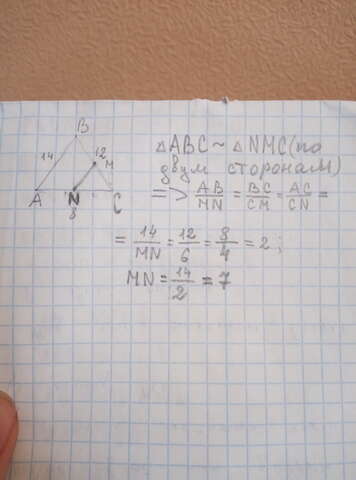 B
14
12
M
A
N
C
8
△ABC ~ △NMC (по
двум сторонам)
=> AB/MN = BC/CM = AC/CN =
= 14/MN = 12/6 = 8/4 = 2 ;
MN = 14/2 = 7